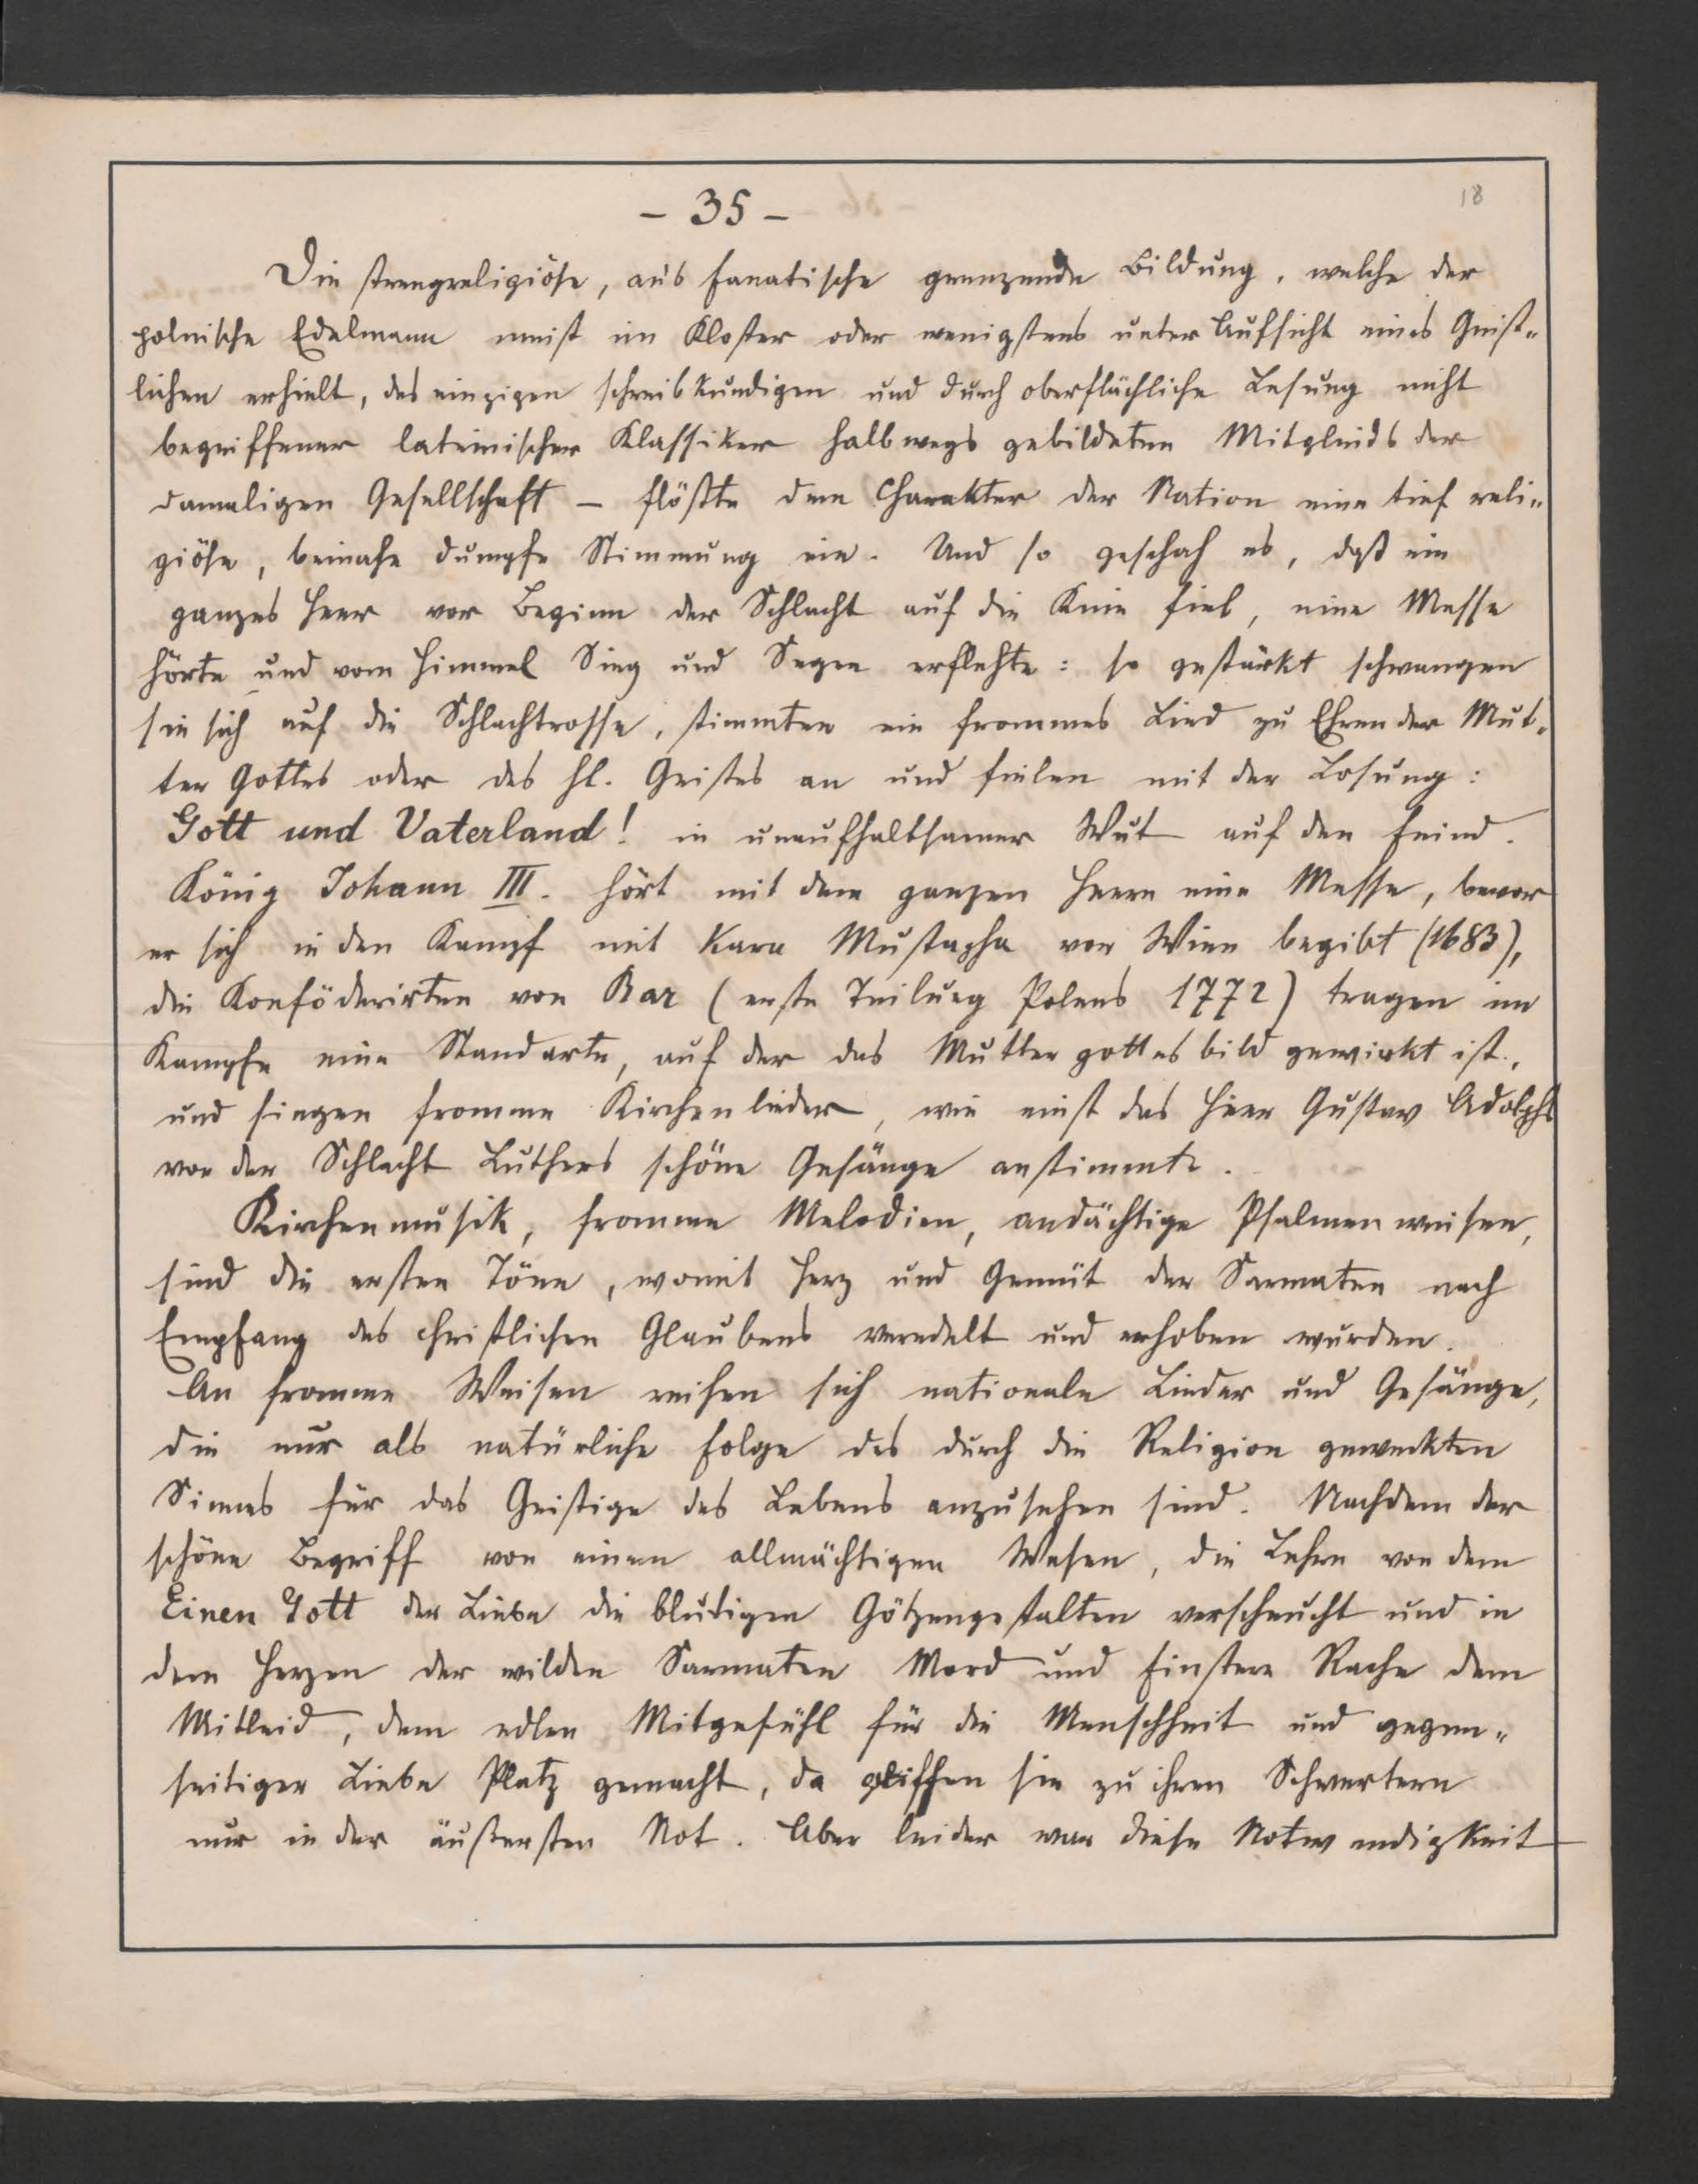 - 35 -
18
Die strengreligiöse, ans fanatische grenzende Bildung, welche der
polnische Edelmann meist im Kloster oder wenigstens unter Aufsicht eines Geist-
lichen erhielt, des einzigen schreibkundigen und durch oberflächliche Lesung nicht
begriffener lateinischer Klassiker halbwegs gebildeten Mitglieds der
damaligen Gesellschaft – flößte dem Charakter der Nation eine tief reli-
giöse, beinahe dumpfe Stimmung ein. Und so geschah es, daß ein
ganzes Heer vor Beginn der Schlacht auf die Knie fiel, eine Messe
hörte und vom Himmel Sieg und Segen erflehte: so gestärkt schwangen
sie sich auf die Schlachtrosse, stimmten ein frommes Lied zu Ehren der Mut-
ter Gottes oder des hl. Geistes an und fielen mit der Losung:
Gott und Vaterland! in unaufhaltsamer Wut auf den Feind.
König Johann III. hört mit dem ganzen Heere eine Messe, bevor
er sich in den Kampf mit Kara Mustapha vor Wien begibt (1683),
die Konföderirten von Bar (erste Teilung Polens 1772) tragen im
Kampfe eine Standarte, auf der das Muttergottesbild gewirkt ist,
und singen fromme Kirchenlieder, wie einst das Heer Gustav Adolphs
vor der Schlacht Luthers schöne Gesänge anstimmte.
Kirchenmusik, fromme Melodien, andächtige Psalmenweisen,
sind die ersten Töne, womit Herz und Gemüt der Sarmaten nach
Empfang des christlichen Glaubens veredelt und erhoben wurden.
An fromme Weisen reihen sich nationale Lieder und Gesänge,
die nur als natürliche Folge des durch die Religion geweckten
Sinnes für das Geistige des Lebens anzusehen sind. Nachdem der
schöne Begriff von einem allmächtigen Wesen, die Lehre von dem
Einen Gott der Liebe die blutigen Götzengestalten verscheucht und in
dem Herzen der wilden Sarmaten Mord und finstere Rache dem
Mitleid, dem edlen Mitgefühl für die Menschheit und gegen-
seitiger Liebe Platz gemacht, da griffen sie zu ihren Schwertern
nur in der äußersten Not. Aber leider war diese Notwendigkeit